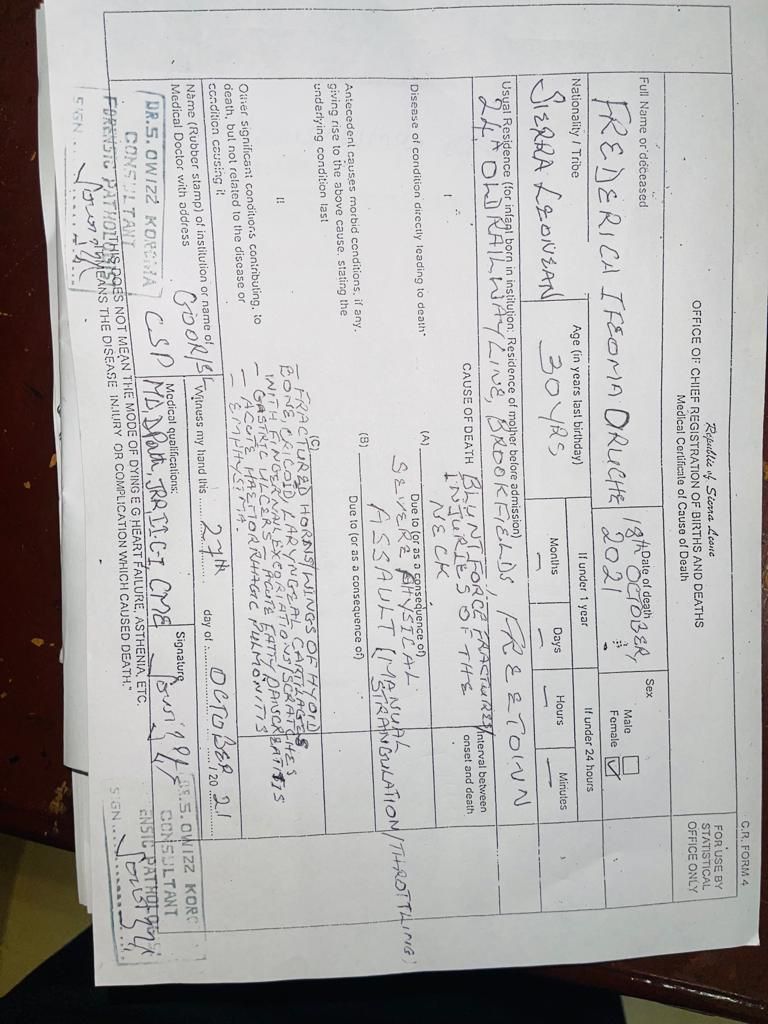 C.R. FORM 4
FOR USE BY
STATISTICAL
OFFICE ONLY
Republic of Sierra Leone
OFFICE OF CHIEF REGISTRATION OF BIRTHS AND DEATHS
Medical Certificate of Cause of Death
Full Name of deceased
FREDERICA IFEOMA DRUCHE
Date of death
18th OCTOBER,
2021
Sex
Male
Female ☑
Nationality / Tribe
SIERRA LEONEAN
Age (in years last birthday)
30 YRS
If under 1 year
Months
–
Days
–
If under 24 hours
Hours
–
Minutes
–
Usual Residence (for infant born in institution: Residence of mother before admission)
24A OLD RAILWAY LINE, BROOKFIELDS, FREETOWN
CAUSE OF DEATH
Interval between
onset and death
Disease of condition directly leading to death*
(A)
BLUNT FORCE FRACTURES/
INJURIES OF THE
NECK
Due to (or as a consequence of)
Antecedent causes morbid conditions, if any,
giving rise to the above cause, stating the
underlying condition last
(B)
SEVERE PHYSICAL
ASSAULT (MANUAL
STRANGULATION/THROTTLING)
Due to (or as a consequence of)
(C)
II
Other significant conditions contributing, to
death, but not related to the disease or
condition causing it
– FRACTURED HORNS/WINGS OF HYOID
BONE, CRICOID LARYNGEAL CARTILAGES
WITH FINGERNAIL EXCORIATIONS/SCRATCHES
– GASTRIC ULCERS, ACUTE FATTY PANCREATITIS
– ACUTE HAEMORRHAGIC PULMONITIS
– EMPHYSEMA.
Name (Rubber stamp) of institution or name of
Medical Doctor with address
Witness my hand this ...... 27th ...... day of ...... OCTOBER ...... 20 ...... 21
DR. S. OWIZZ KOROMA
CONSULTANT
FORENSIC PATHOLOGIST
SIGN
CSP
Medical qualifications:
Signature
DR. S. OWIZZ KORO
CONSULTANT
ENSIC PATHOLOGIS
SIGN
THIS DOES NOT MEAN THE MODE OF DYING E G HEART FAILURE, ASTHENIA, ETC.
MEANS THE DISEASE INJURY OR COMPLICATION WHICH CAUSED DEATH."